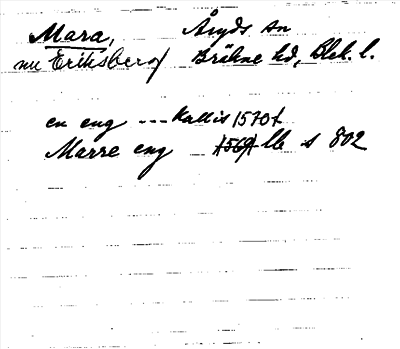 Mara, Åryds sn
nu Eriksberg Bräkne hd, Blek. l.
en eng --- kallis 1570 t
Marre eng 1569 Mb s 802